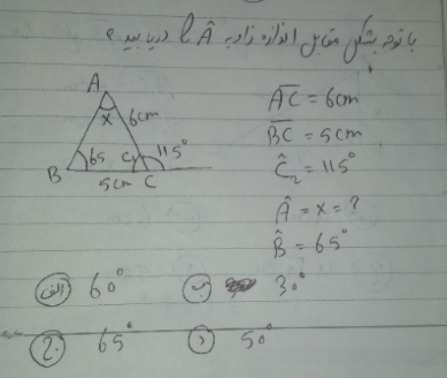 با توجه بشکل مقابل اندازه زاویه Â را دریابید ؟
A
x
6cm
65
C₁
115°
B
5cm
C
AC = 6cm
BC = 5cm
Ĉ₂ = 115°
Â = x = ?
B̂ = 65°
الف 60°
ب 30°
ج 65°
د 50°